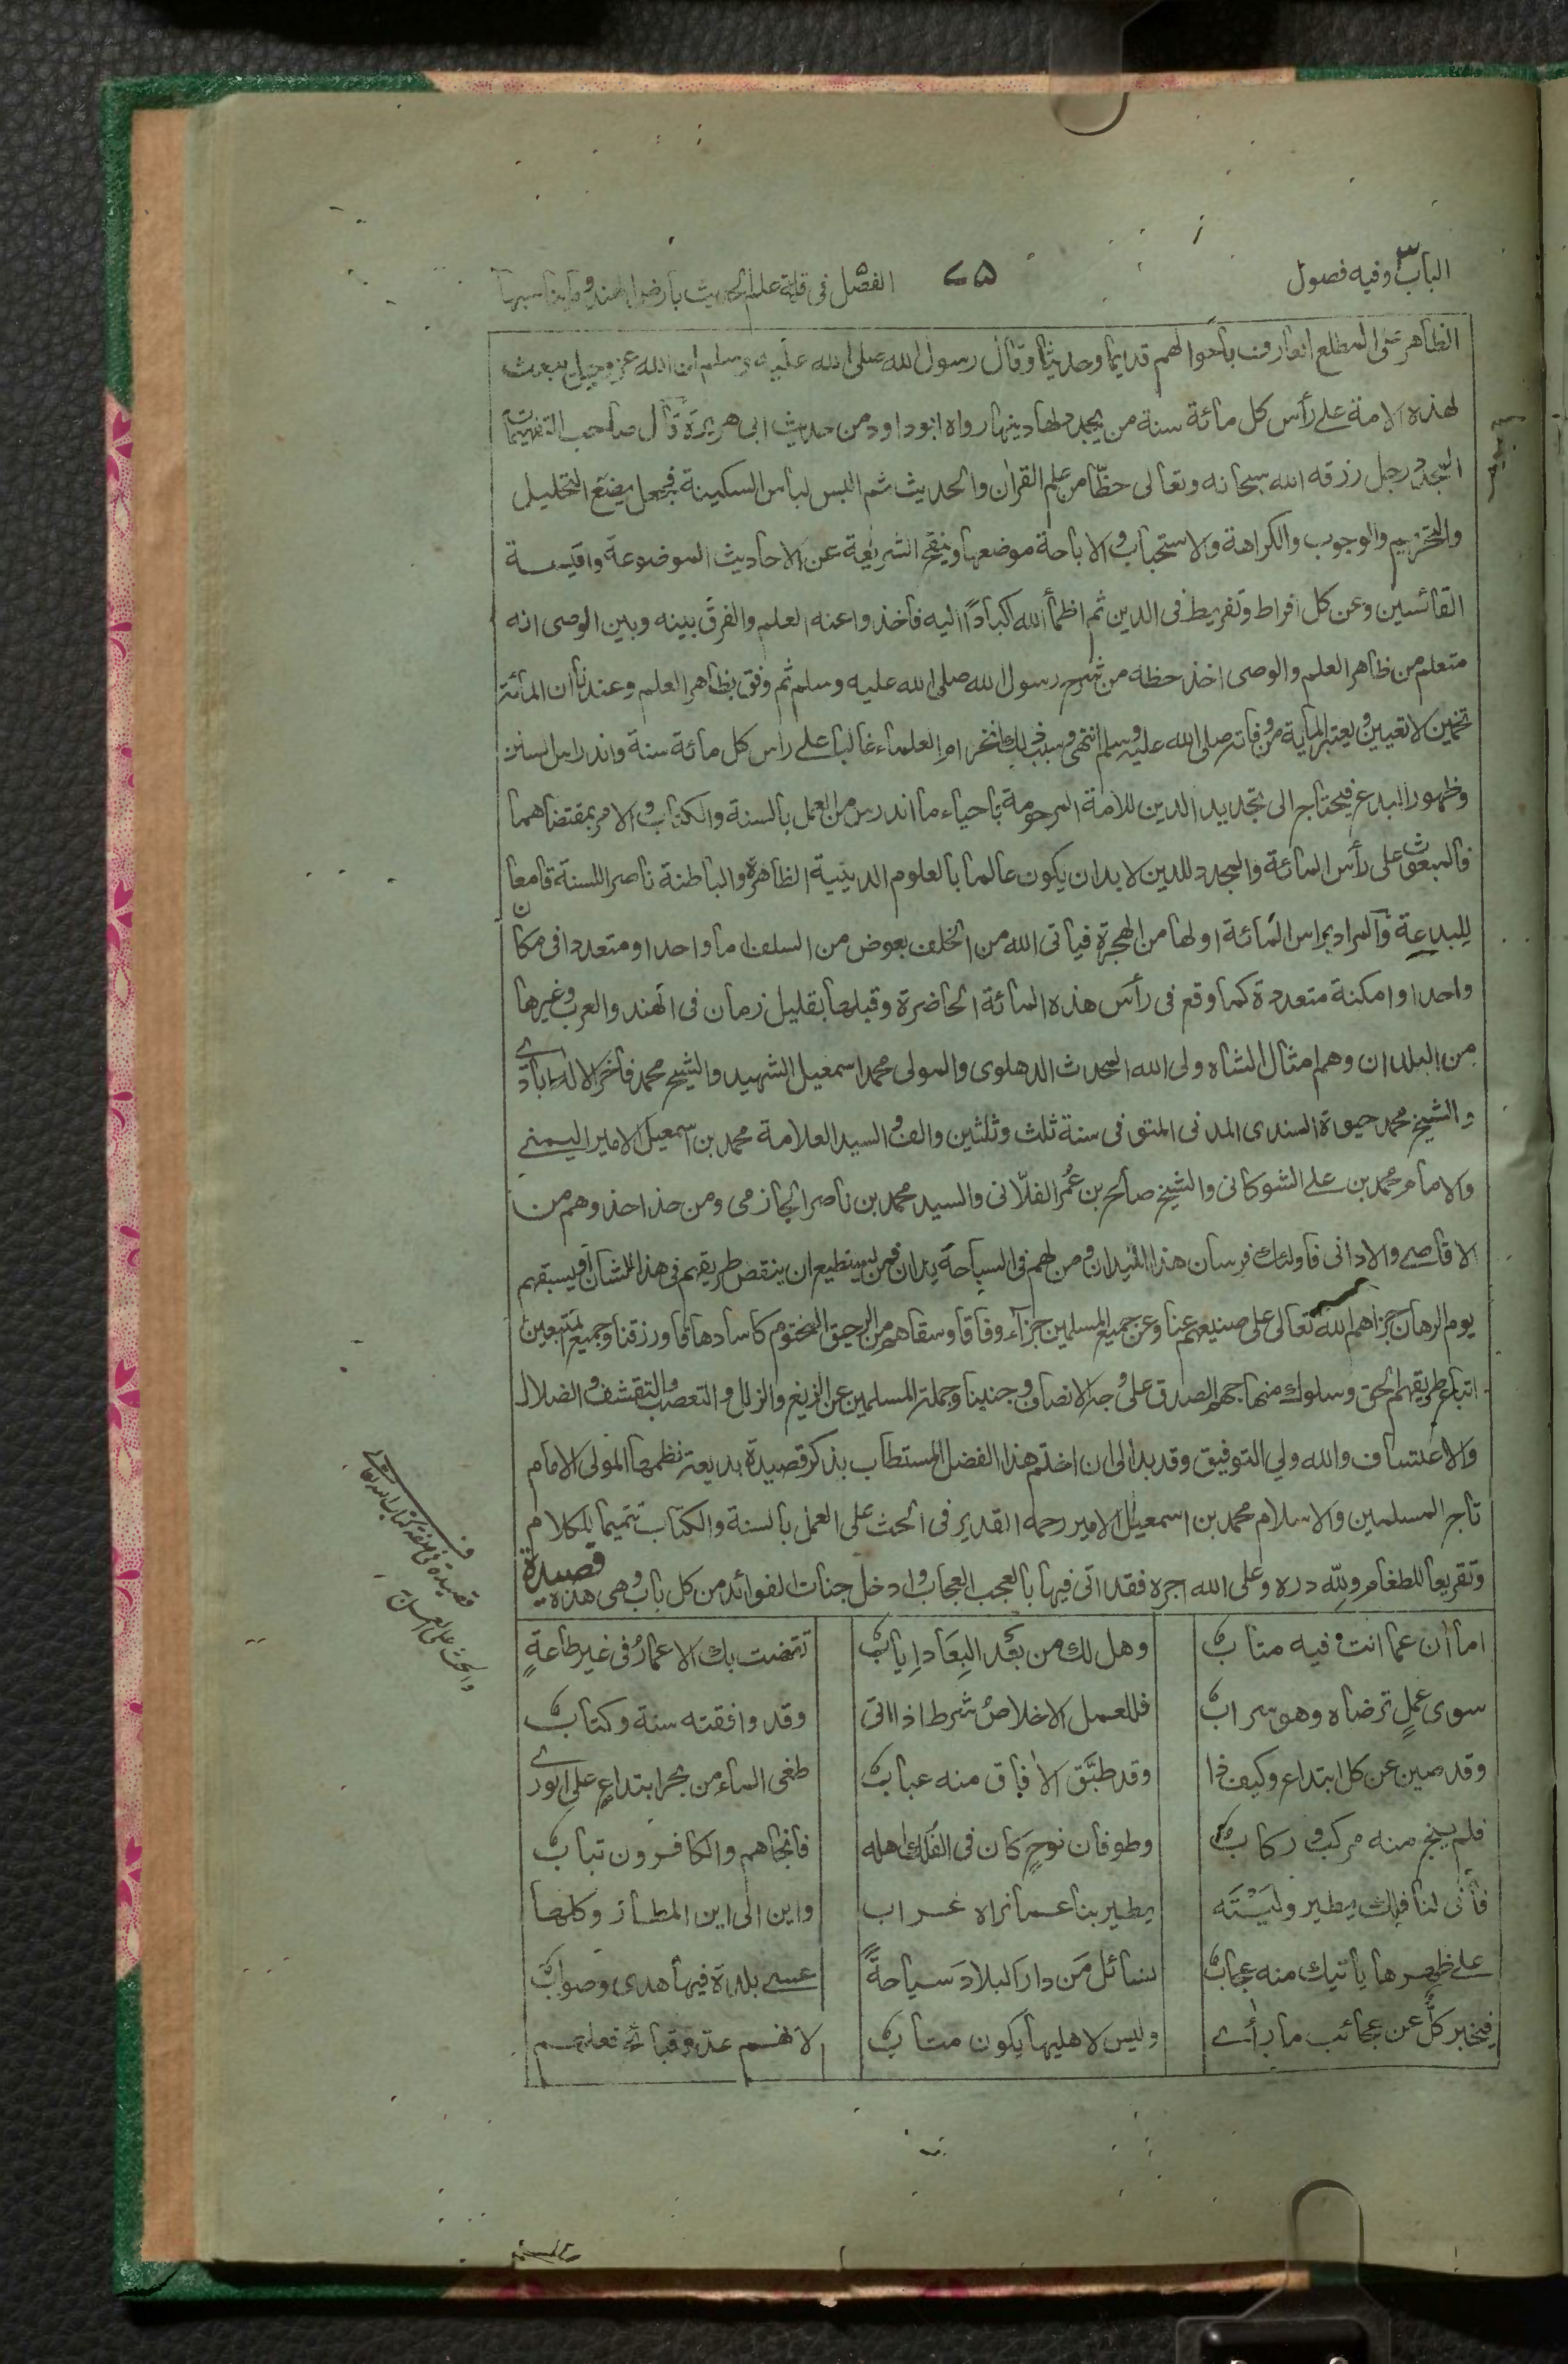 الباب٣ وفيه فصول
٧٥
الفصل٥ فى قلة علم الحديث بارض الهند وما يناسبها
الظاهر على المطلع العارف باحوالهم قديما وحديثا وقال رسول الله صلى الله عليه وسلم ان الله عز وجل يبعث
لهذه الامة على رأس كل مائة سنة من يجدد لها دينها رواه ابو داود من حديث ابى هريرة قال صاحب التفهيمات
المجدد رجل رزقه الله سبحانه وتعالى حظّا من علم القران والحديث ثم البس لباس السكينة فجعل يضع التحليل
والتحريم والوجوب والكراهة والاستحباب والاباحة موضعها وينقح الشريعة عن الاحاديث الموضوعة واقيسة
القائسين وعن كل افراط وتفريط فى الدين ثم اظمأ الله اكباداً اليه فاخذوا عنه العلم والفرق بينه وبين الوصى انه
متعلم من ظاهر العلم والوصى اخذ حظه من شرح رسول الله صلى الله عليه وسلم ثم وفق بظاهر العلم وعندنا ان المائة
تخمين لا تعيين ويعتبر المائة من وفاته صلى الله عليه وسلم انتهى وسبب ذلك انخرام العلماء غالبا على راس كل مائة سنة واندراس السنن
وظهور البدع فيحتاج الى تجديد الدين للامة المرحومة باحياء ما اندرس من العمل بالسنة والكتاب والامر بمقتضاهما
فالمبعوث على رأس المائة والمجدد للدين لا بد ان يكون عالما بالعلوم الدينية الظاهرة والباطنة ناصرا للسنة قامعا
للبدعة والمراد براس المائة اولها من الهجرة فياتى الله من الخلف بعوض من السلف اما واحدا او متعددا فى مكان
واحد او امكنة متعددة كما وقع فى رأس هذه المائة الحاضرة وقبلها بقليل زمان فى الهند والعرب وغيرها
من البلدان وهم امثال الشاه ولى الله المحدث الدهلوى والمولى محمد اسمعيل الشهيد والشيخ محمد فاخر الاله ابادى
والشيخ محمد حيوة السندى المدنى المتوفى سنة ثلث وثلثين والف والسيد العلامة محمد بن اسمعيل الامير اليمنى
والامام محمد بن على الشوكانى والشيخ صالح بن عُمر الفلّانى والسيد محمد بن ناصر الحازمى ومن حذا حذوهم من
الاقاصى والادانى فاولئك فرسان هذا الميدان ومن لهم فى السباحة يدان فمن يستطيع ان ينقص طريقهم فى هذا الشان او يسبقهم
يوم الرهان جزاهم الله تعالى على صنيعهم عنا وعن جميع المسلمين جزاء وفاقا وسقاهم من الرحيق المختوم كاسا دهاقا ورزقنا وجميع المتبعين
اتباع طريقهم الحق وسلوك منهاجهم الصدق على وجه الانصاف وجنبنا وجملة المسلمين عن الزيغ والزلل والتعصب والتقشف والضلال
والاعتساف والله ولي التوفيق وقد بدا لى ان اختم هذا الفصل المستطاب بذكر قصيدة بديعة نظمها المولى الامام
تاج المسلمين والاسلام محمد بن اسمعيل الامير رحمه القدير فى الحث على العمل بالسنة والكتاب تتميما للكلام
وتقريعا للطغام ولله دره وعلى الله اجره فقد اتى فيها بالعجب العجاب وادخل جنات الفوائد من كل باب وهى هذه قصيدة
اما آن عما انت فيه متاب وهل لك من بَعْد البِعَاد اِياب تقضت بك الاعمارُ فى غير طاعةٍ
سوى عملٍ ترضاه وهو سراب فللعمل الاخلاصُ شرط اذا اتى وقد وافقته سنة وكتاب
وقد صين عن كل ابتداع وكيف ذا وقد طبّق الاٰفاق منه عباب طغى الماء من بحر ابتداعٍ على الورى
فلم ينج منه مركب وركاب وطوفان نوحٍ كان فى الفلك اهله فانجاهم والكافرون تباب
فأنّى لنا فلك يطير وليْتَه يطير بنا عما نراه غراب واين الى اين المطار وكلها
على ظهرها ياتيك منه عجاب نسائل مَن دار البلادَ سياحةً عسى بلدة فيها هدى وصواب
فيخبر كلٌّ عن عجائب ما رأى وليس لاهليها يكون متاب لانهم عدّوا قبائح فعلهم